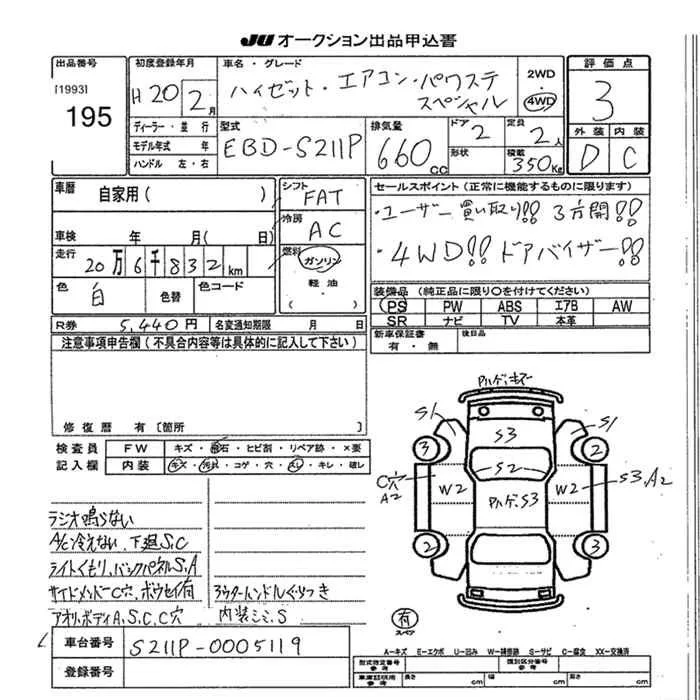 JU オークション出品申込書
出品番号
[1993]
195
初度登録年月
H 20 年 2 月
車名・グレード
ハイゼット・エアコン・パワステ
スペシャル
2WD
4WD
評価点
3
外装 内装
D C
ディーラー・並行
モデル年式 年
ハンドル 左・右
型式
EBD-S211P
排気量
660 cc
ドア 2
形状
定員 2人
積載 350Kg
車歴 自家用( )
車検 年 月( 日)
走行 20万6千832km
色 白
色替
色コード
シフト FAT
冷房 AC
燃料
ガソリン
軽油
( )
セールスポイント(正常に機能するものに限ります)
・ユーザー買い取り!! 3方開!!
・4WD!! ドアバイザー!!
装備品(純正品に限り〇を付けてください)
PS PW ABS エアB AW
SR ナビ TV 本革
新車保証書
有・無
後日品
R券 5,440円
名変通知期限 月 日
注意事項申告欄(不具合内容等は具体的に記入して下さい)
修復歴 有〔箇所
検査員
記入欄
FW キズ・飛石・ヒビ割・リペア跡・×要
内装 キズ・汚れ・コゲ・穴・スレ・キレ・破レ
ラジオ鳴らない
A/C冷えない、下廻S,C
ライトくもり、バックパネルS,A
サイドメンバーC穴、ボウセイ有
アオリ、ボディA,S,C,C穴
アウターハンドルぐらつき
内装シミ、S
S1
S3
S1
3
2
S2
C穴
A2
W2
W2
S3,A2
Pハゲ,S3
2
3
有
スペア
A-キズ E-エクボ U-凹み W-補修跡 S-サビ C-腐食 XX-交換済
車台番号 S211P-0005119
登録番号
型式指定番号
参考
類別区分番号
参考
車庫証明用
参考
長さ cm
幅 cm
高さ cm